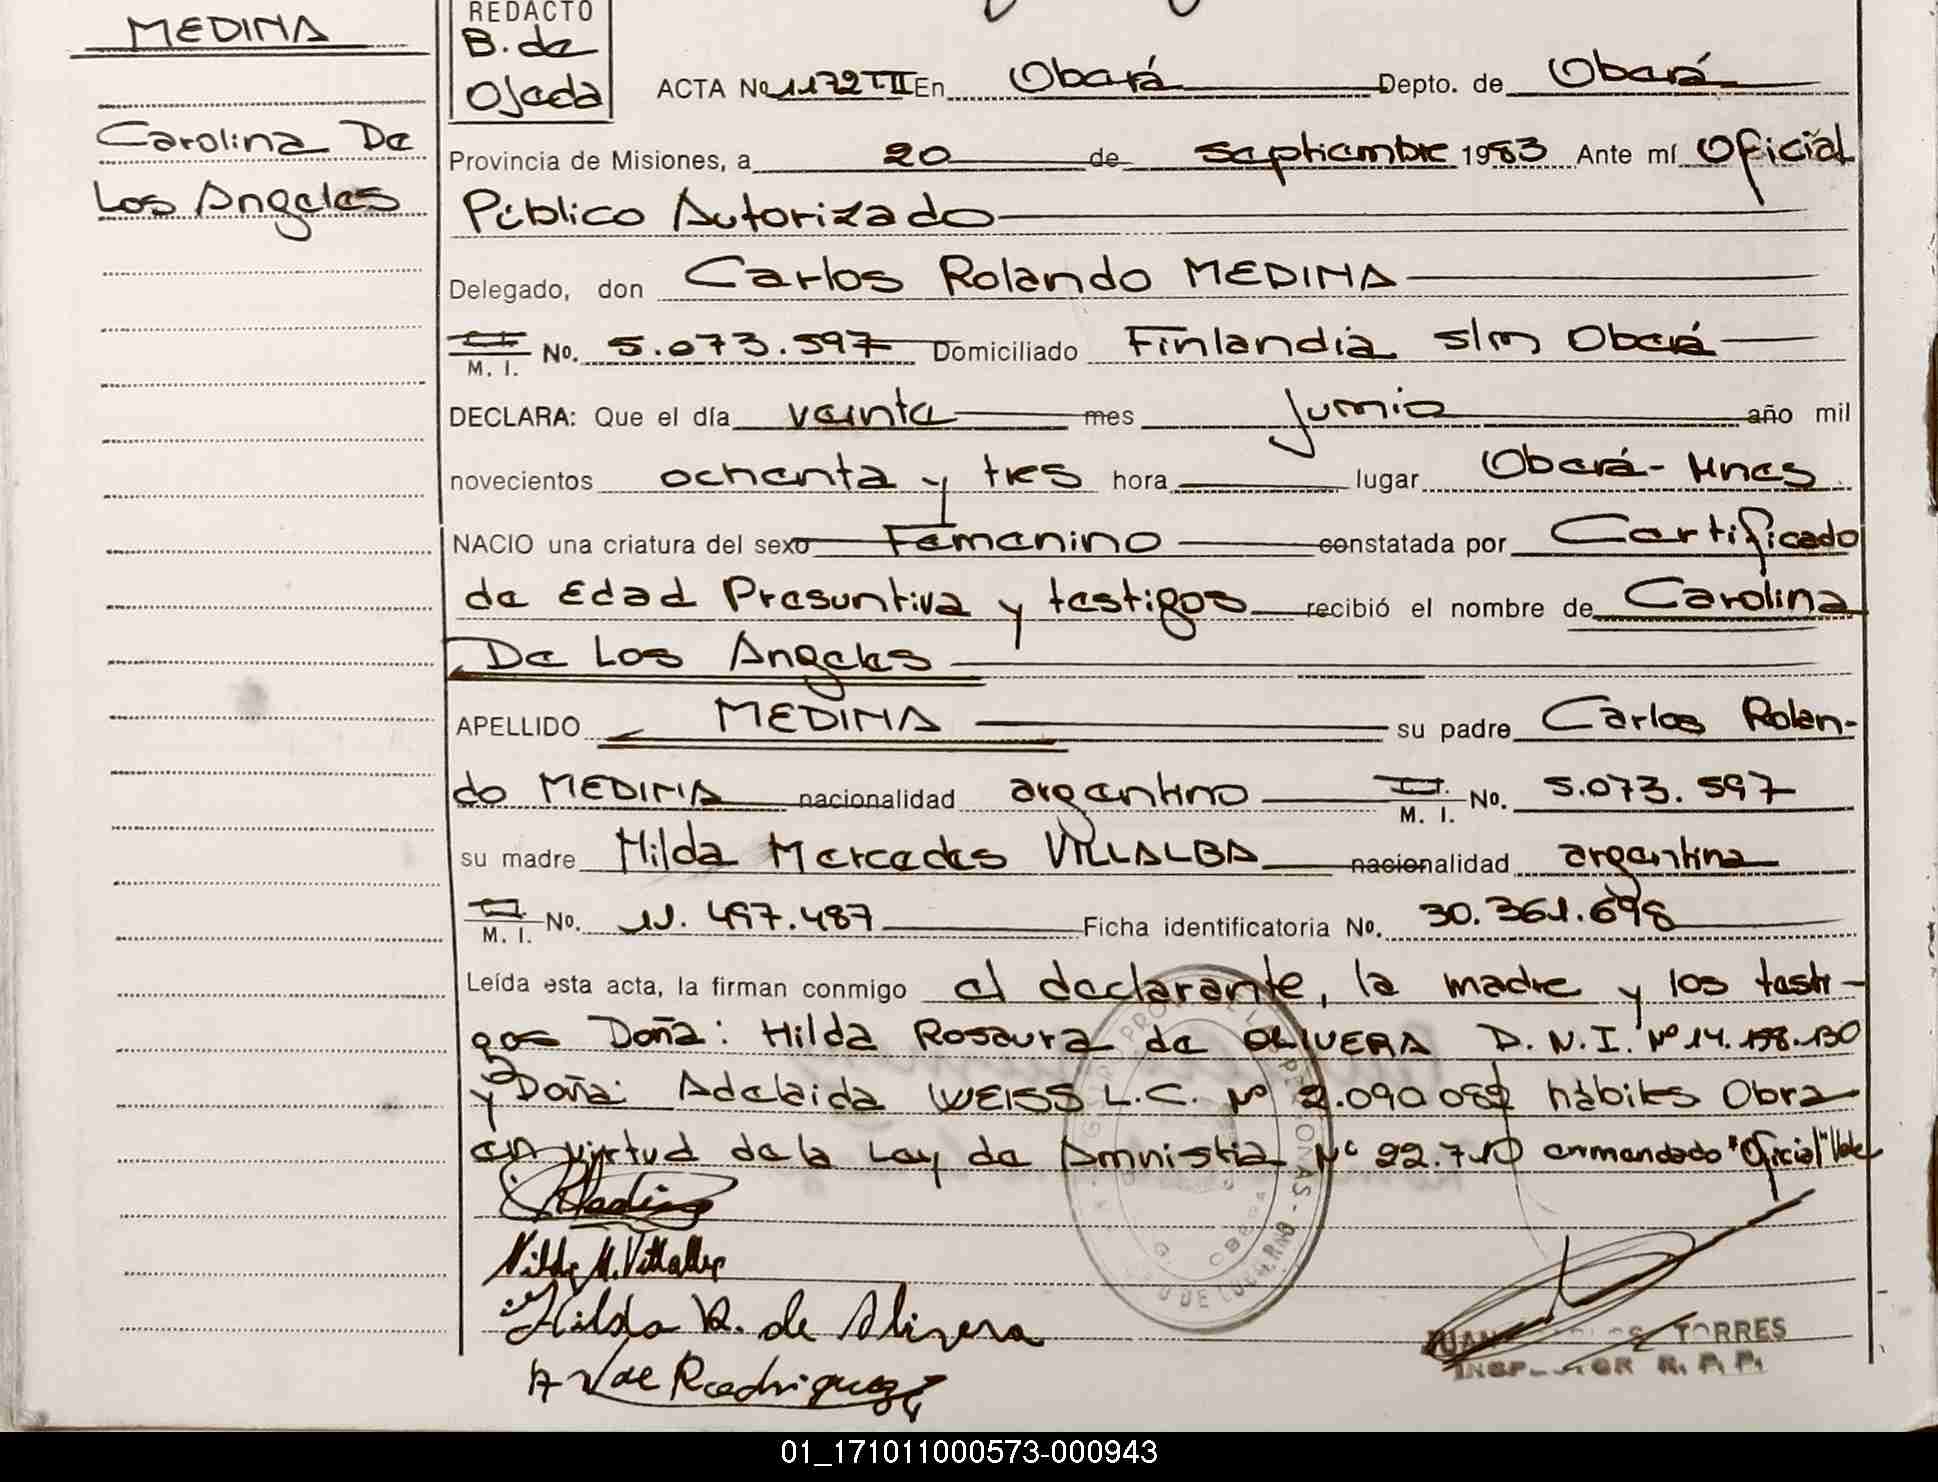 MEDINA
Carolina De
Los Angeles
REDACTO
B. de
Ojeda
ACTA No 1172 T II En Oberá Depto. de Oberá
Provincia de Misiones, a 20 de septiembre 1983 Ante mí Oficial
Público Autorizado
Delegado, don Carlos Rolando MEDINA
M. I. No. 5.073.597 Domiciliado Finlandia s/n Oberá
DECLARA: Que el día veinte mes junio año mil
novecientos ochenta y tres hora lugar Oberá - Mnes
NACIO una criatura del sexo Femenino constatada por Certificado
de Edad Presuntiva y testigos recibió el nombre de Carolina
De Los Angeles
APELLIDO MEDINA su padre Carlos Rolan-
do MEDINA nacionalidad argentino M. I. No. 5.073.597
su madre Hilda Mercedes VILLALBA nacionalidad argentina
M. I. No. 11.497.487 Ficha identificatoria No. 30.361.698
Leída esta acta, la firman conmigo el declarante, la madre y los testi-
gos Doña: Hilda Rosaura de OLIVERA D.N.I. Nº 14.198.130
y Doña: Adelaida WEISS L.C. Nº 2.090.082 hábiles Obra
en virtud de la Ley de Amnistia Nº 22.710 enmendado "Oficial" Vale
Hilda M. Villalba
Hilda R. de Olivera
A W de Rodriguez
JUAN CARLOS TORRES
INSPECTOR R. P. P.
01_171011000573-000943